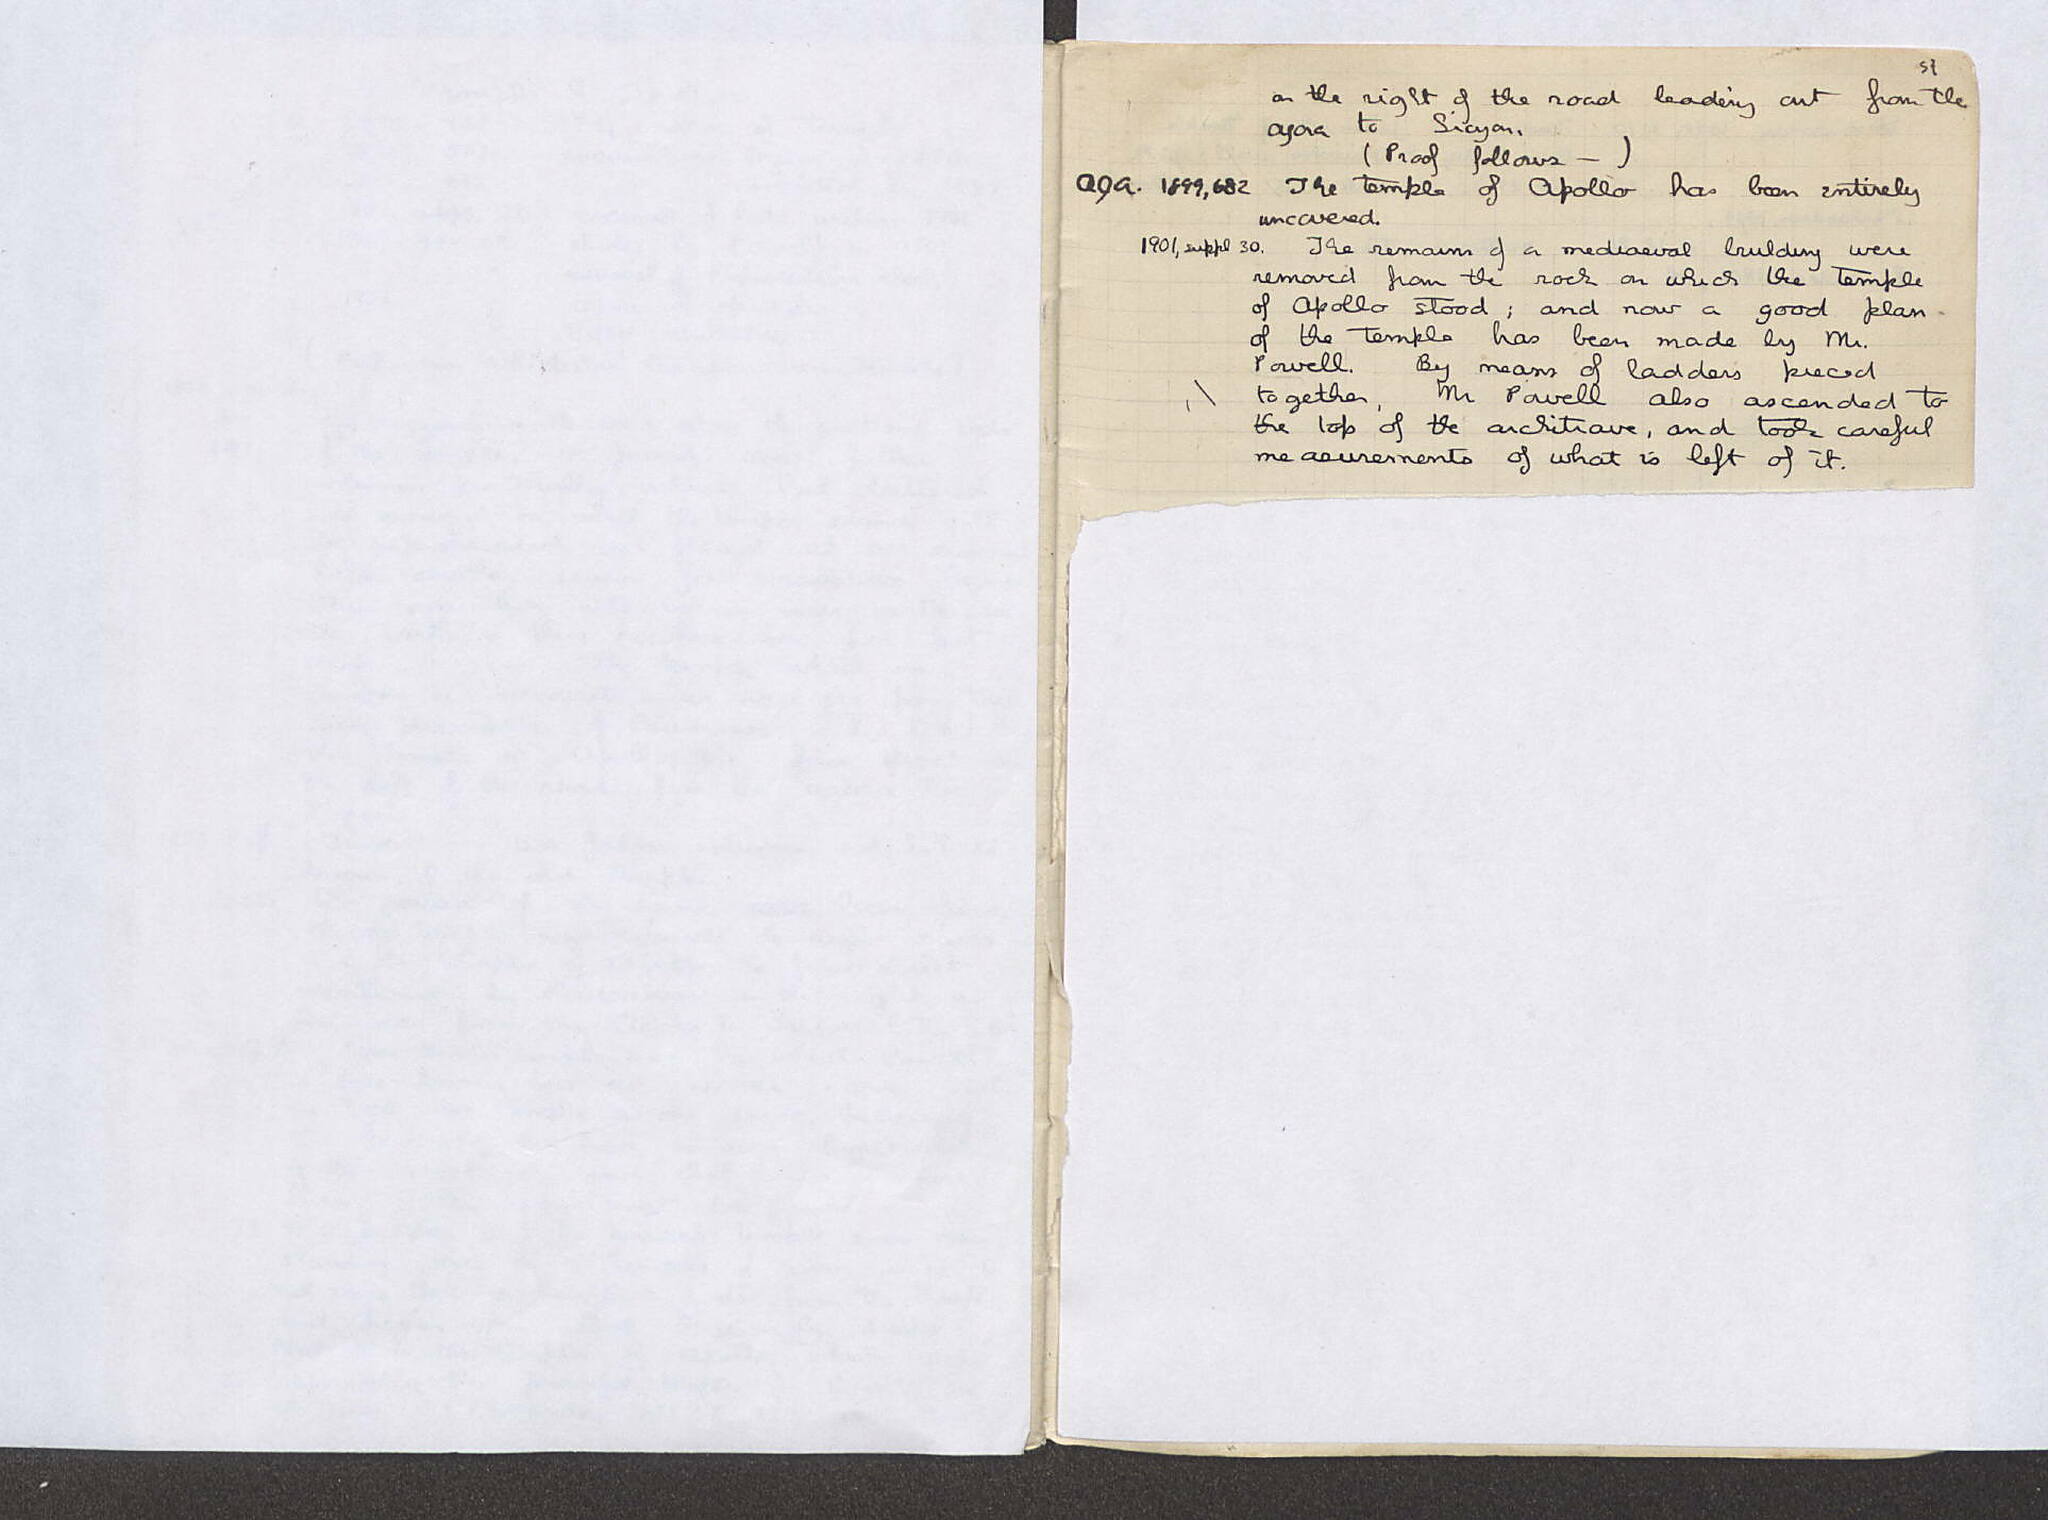 51
on the right of the road leading out from the
agora to Sicyon.
(Proof follows — )
AJA. 1899, 682 The temple of Apollo has been entirely
uncovered.
1901, suppl 30. The remains of a mediaeval building were
removed from the rock on which the temple
of Apollo stood; and now a good plan
of the temple has been made by Mr.
Powell. By means of ladders pieced
together, Mr Powell also ascended to
the top of the architrave, and took careful
measurements of what is left of it.